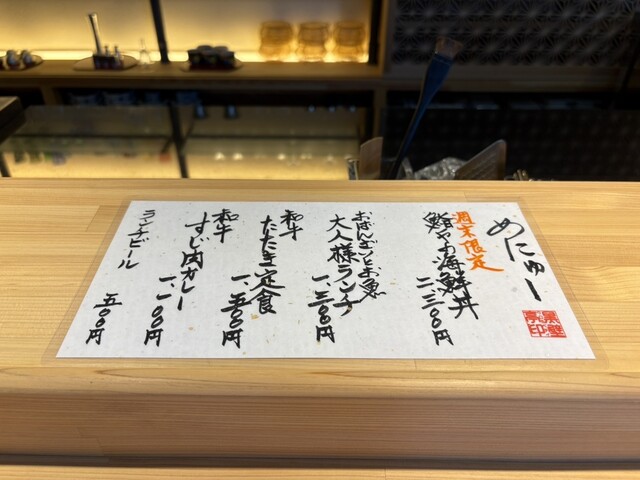 めにゅー
週末限定
鮨やの海鮮丼
二、三〇〇円
おばんざいとお魚
大人様ランチ
一、三〇〇円
和牛
たたき定食
一、五〇〇円
和牛
すじ肉カレー
一、一〇〇円
ランチビール
五〇〇円